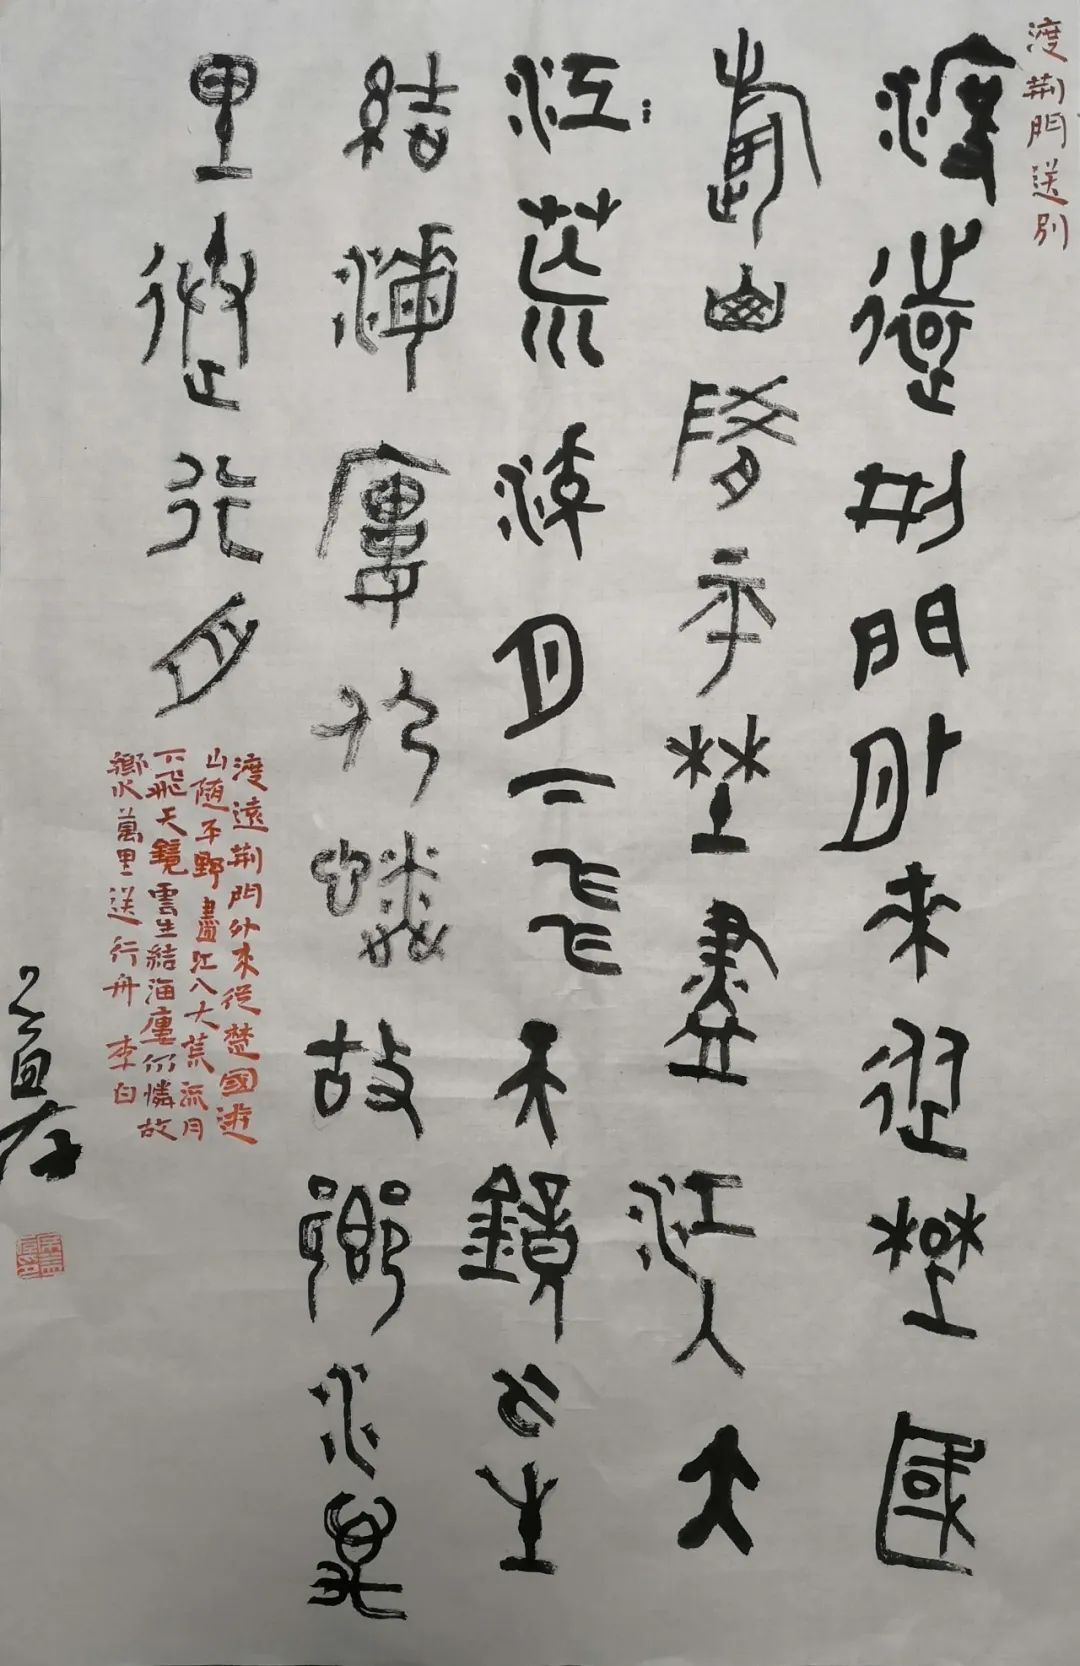 渡荆門送別
渡遠荆門外來從楚國
遊山隨平埜盡江入大
江荒流月下飛天鏡云生
結海廔仍憐故鄉水萬
里送行舟
渡遠荆門外來從楚國遊
山隨平野盡江入大荒流月
下飛天鏡雲生結海廔仍憐故
鄉水萬里送行舟 李白